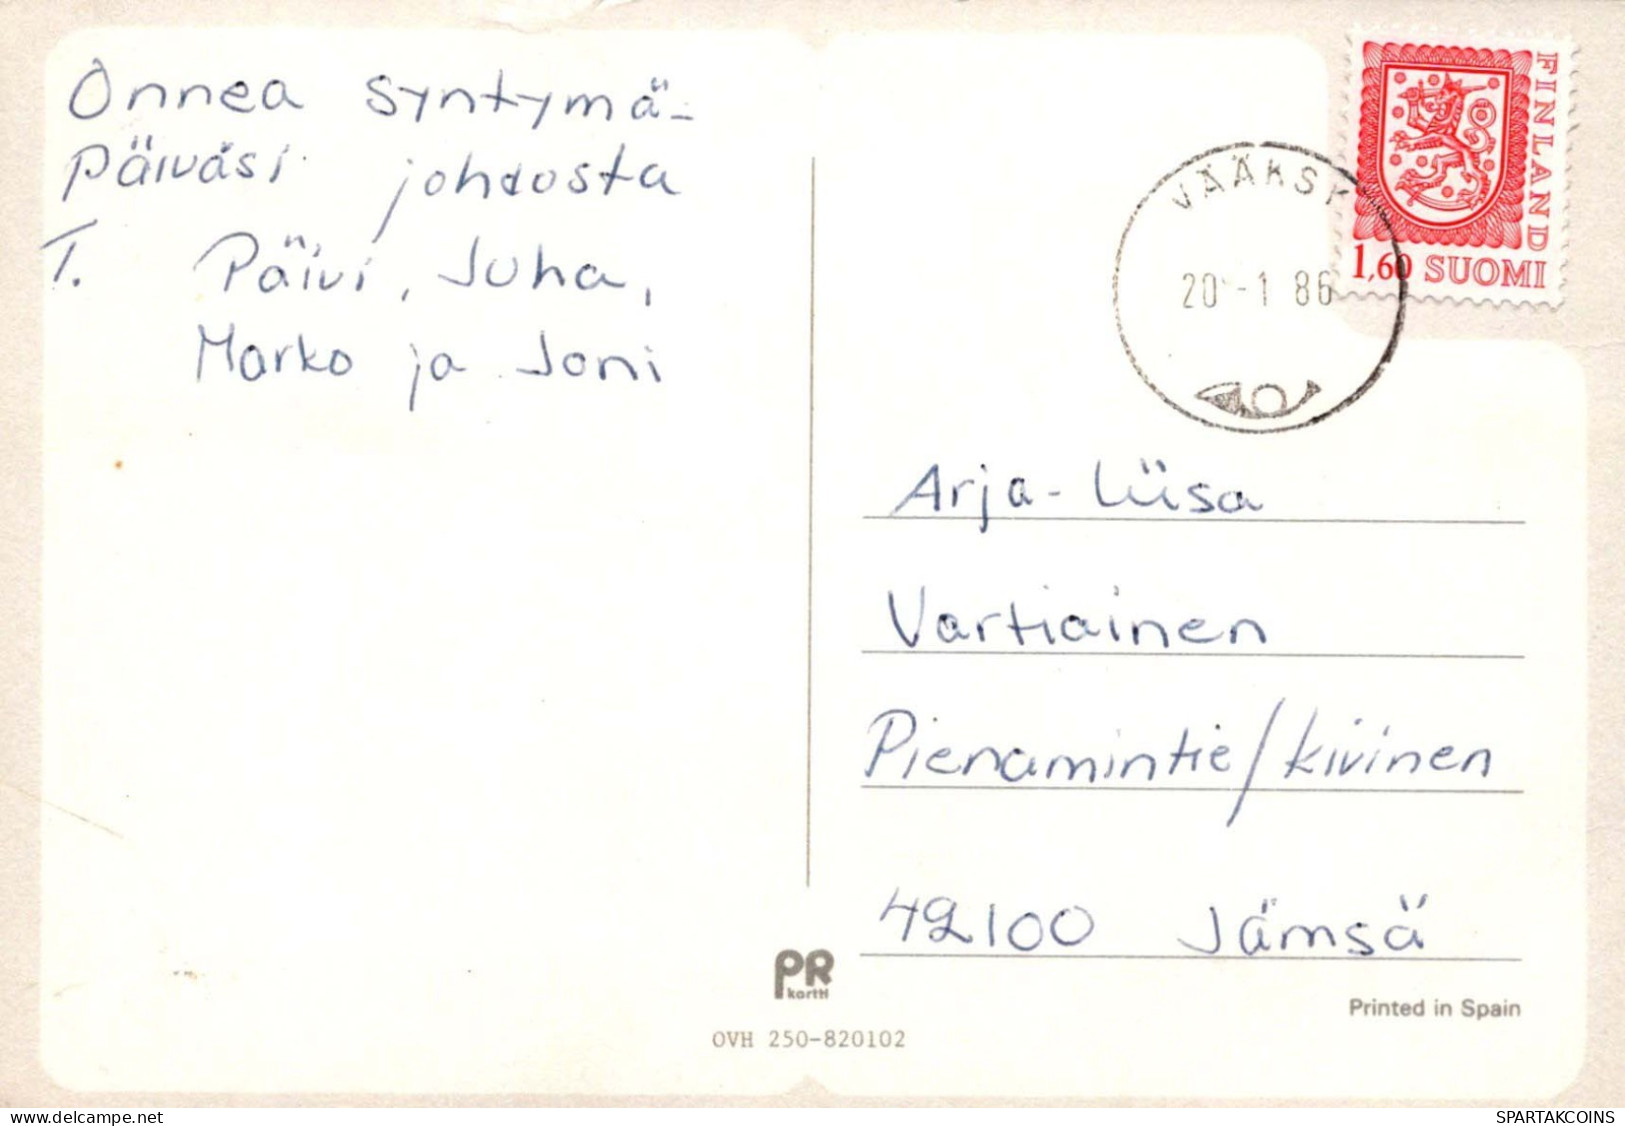 Onnea syntymä-
päiväsi johdosta
T. Päivi, Juha,
Marko ja Joni
FINLAND
1,60 SUOMI
VÄÄKSY
20.-1 86
Arja-Liisa
Vartiainen
Pienamintie/kivinen
42100 Jämsä
PR
kortti
Printed in Spain
OVH 250-820102
delcampe.net
SPARTAKCOINS